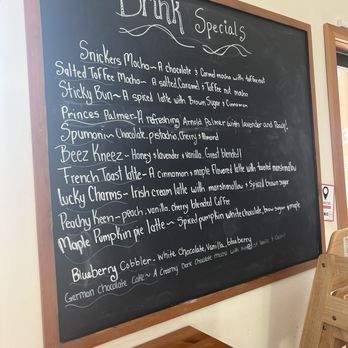 Drink Specials
Snickers Mocha~ A chocolate & Caramel mocha with toffee nut
Salted Toffee Mocha~ A salted, Caramel & Toffee nut mocha
Sticky Bun~ A spiced latte with Brown Sugar & Cinnamon
Princes Palmer~ A refreshing Arnold Palmer with lavender and
Spumoni~ Chocolate, pistachio, Cherry & Almond
Beez Kneez- Honey & lavender & vanilla. Great blended!
French Toast latte- A cinnamon & maple flavored latte with toasted marshmallow
Lucky Charms- Irish cream latte with marshmallow & Spiced brown sugar
Peachy Keen- peach, vanilla, cherry blended Coffee
Maple Pumpkin pie latte~ Spiced pumpkin white chocolate, brown sugar & maple
Blueberry Cobbler- white Chocolate, Vanilla, blueberry
German Chocolate Cake~ A Creamy Dark Chocolate mocha with of &